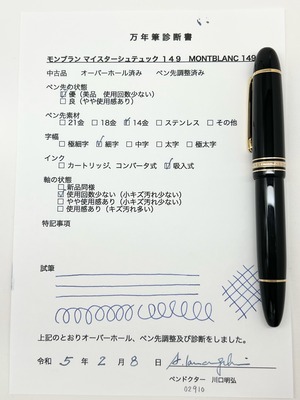 万年筆診断書
モンブラン マイスターシュテュック 149 MONTBLANC 149
中古品 オーバーホール済み ペン先調整済み
ペン先の状態
☑優（美品 使用回数少ない）
□良（やや使用感あり）
ペン先素材
□21金 □18金 ☑14金 □ステンレス □その他
字幅
□極細字 ☑細字 □中字 □太字 □極太字
インク
□カートリッジ、コンバータ式 ☑吸入式
軸の状態
□新品同様
☑使用回数少ない（小キズ汚れ少ない）
□やや使用感あり（小キズ汚れ少ない）
□使用感あり（キズ汚れ多い）
特記事項
試筆
上記のとおりオーバーホール、ペン先調整及び診断をしました。
令和 5 年 2 月 8 日
ペンドクター 川口明弘
02910